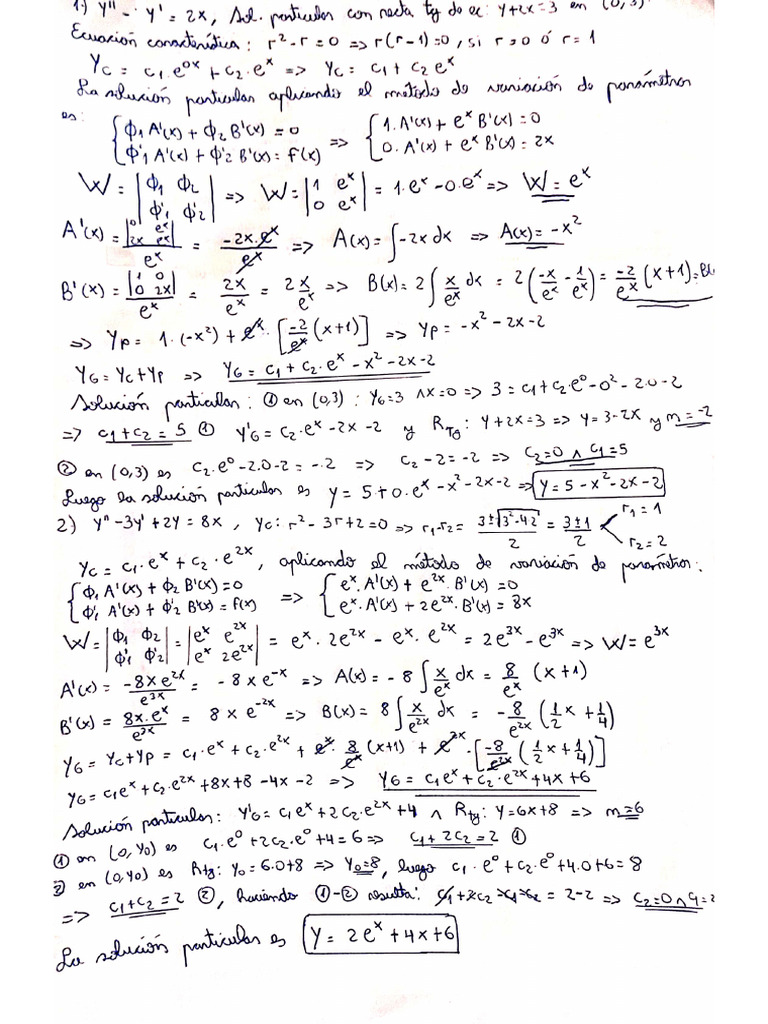 1.) y'' - y' = 2x, Sol. particular con recta tg de ec: y+2x=3 en (0,3).
Ecuación característica: r²-r=0 => r(r-1)=0, si r=0 ó r=1
Yc = c₁.e^0x + c₂.e^x => Yc = c₁ + c₂e^x
La solución particular aplicando el método de variación de parámetros
es: { ϕ₁ A'(x) + ϕ₂ B'(x) = 0 => { 1. A'(x) + e^x B'(x) = 0
{ ϕ'₁ A'(x) + ϕ'₂ B'(x) = f(x) { 0. A'(x) + e^x B'(x) = 2x
W = |ϕ₁ ϕ₂; ϕ'₁ ϕ'₂| => W = |1 e^x; 0 e^x| = 1.e^x - 0.e^x => W = e^x
A'(x) = |0 e^x; 2x e^x| / e^x = -2x.e^x / e^x => A(x) = ∫-2x dx => A(x) = -x²
B'(x) = |1 0; 0 2x| / e^x = 2x/e^x = 2 x/e^x => B(x) = 2∫ x/e^x dx = 2(-x/e^x - 1/e^x) = -2/e^x (x+1) = B(
=> Yp = 1.(-x²) + e^x.[-2/e^x (x+1)] => Yp = -x² - 2x - 2
YG = Yc + Yp => YG = c₁ + c₂.e^x - x² - 2x - 2
Solución particular: ① en (0,3): YG=3 ∧ x=0 => 3 = c₁ + c₂.e⁰ - 0² - 2.0 - 2
=> c₁ + c₂ = 5 ① Y'G = c₂.e^x - 2x - 2 y RTg: y+2x=3 => y=3-2x y m=-2
② en (0,3) es c₂.e⁰ - 2.0 - 2 = -2 => c₂ - 2 = -2 => c₂=0 ∧ c₁=5
Luego la solución particular es y = 5 + 0.e^x - x² - 2x - 2 => y = 5 - x² - 2x - 2
2) y'' - 3y' + 2y = 8x, yc: r² - 3r + 2 = 0 => r₁-r₂ = 3±√3²-4.2 / 2 = 3±1 / 2 < r₁ = 1
r₂ = 2
Yc = c₁.e^x + c₂.e^2x, aplicando el método de variación de parámetros:
{ ϕ₁ A'(x) + ϕ₂ B'(x) = 0 => { e^x. A'(x) + e^2x. B'(x) = 0
{ ϕ'₁ A'(x) + ϕ'₂ B'(x) = f(x) { e^x. A'(x) + 2e^2x. B'(x) = 8x
W = |ϕ₁ ϕ₂; ϕ'₁ ϕ'₂| = |e^x e^2x; e^x 2e^2x| = e^x . 2e^2x - e^x . e^2x = 2e^3x - e^3x => W = e^3x
A'(x) = -8xe^2x / e^3x = -8xe^-x => A(x) = -8∫ x/e^x dx = 8/e^x (x+1)
B'(x) = 8x.e^x / e^3x = 8xe^-2x => B(x) = 8∫ x/e^2x dx = -8/e^2x (1/2 x + 1/4)
YG = Yc + Yp = c₁.e^x + c₂.e^2x + e^x. 8/e^x (x+1) + e^2x.[-8/e^2x (1/2 x + 1/4)]
YG = c₁e^x + c₂.e^2x + 8x + 8 - 4x - 2 => YG = c₁e^x + c₂.e^2x + 4x + 6
Solución particular: Y'G = c₁e^x + 2c₂.e^2x + 4 ∧ Rtg: y=6x+8 => m=6
① en (0, y₀) es c₁.e⁰ + 2c₂.e⁰ + 4 = 6 => c₁ + 2c₂ = 2 ①
② en (0, y₀) es Rtg: y₀ = 6.0+8 => y₀=8, luego c₁.e⁰ + c₂.e⁰ + 4.0 + 6 = 8
=> c₁ + c₂ = 2 ②, haciendo ①-② resulta: c₁ + 2c₂ - c₁ - c₂ = 2-2 => c₂=0 ∧ c₁=2
La solución particular es y = 2e^x + 4x + 6